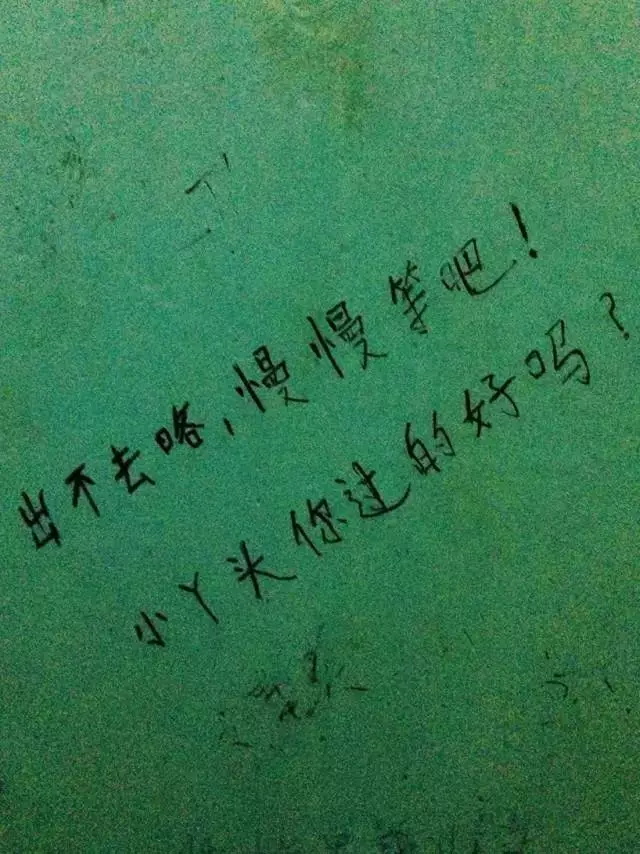 出不去咯,慢慢等吧!
小丫头你过的好吗?